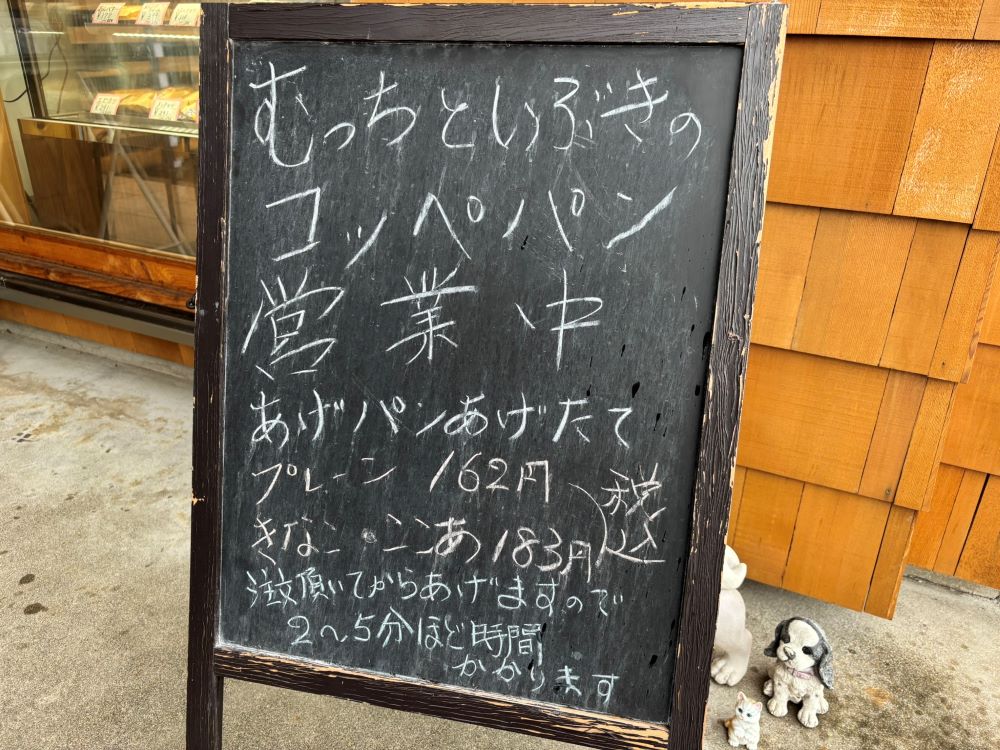 むっちといぶきの
コッペパン
営業中
あげパンあげたて
プレーン 162円
きなこ・ここあ 183円 税込
注文頂いてからあげますので
2〜5分ほど時間
かかります